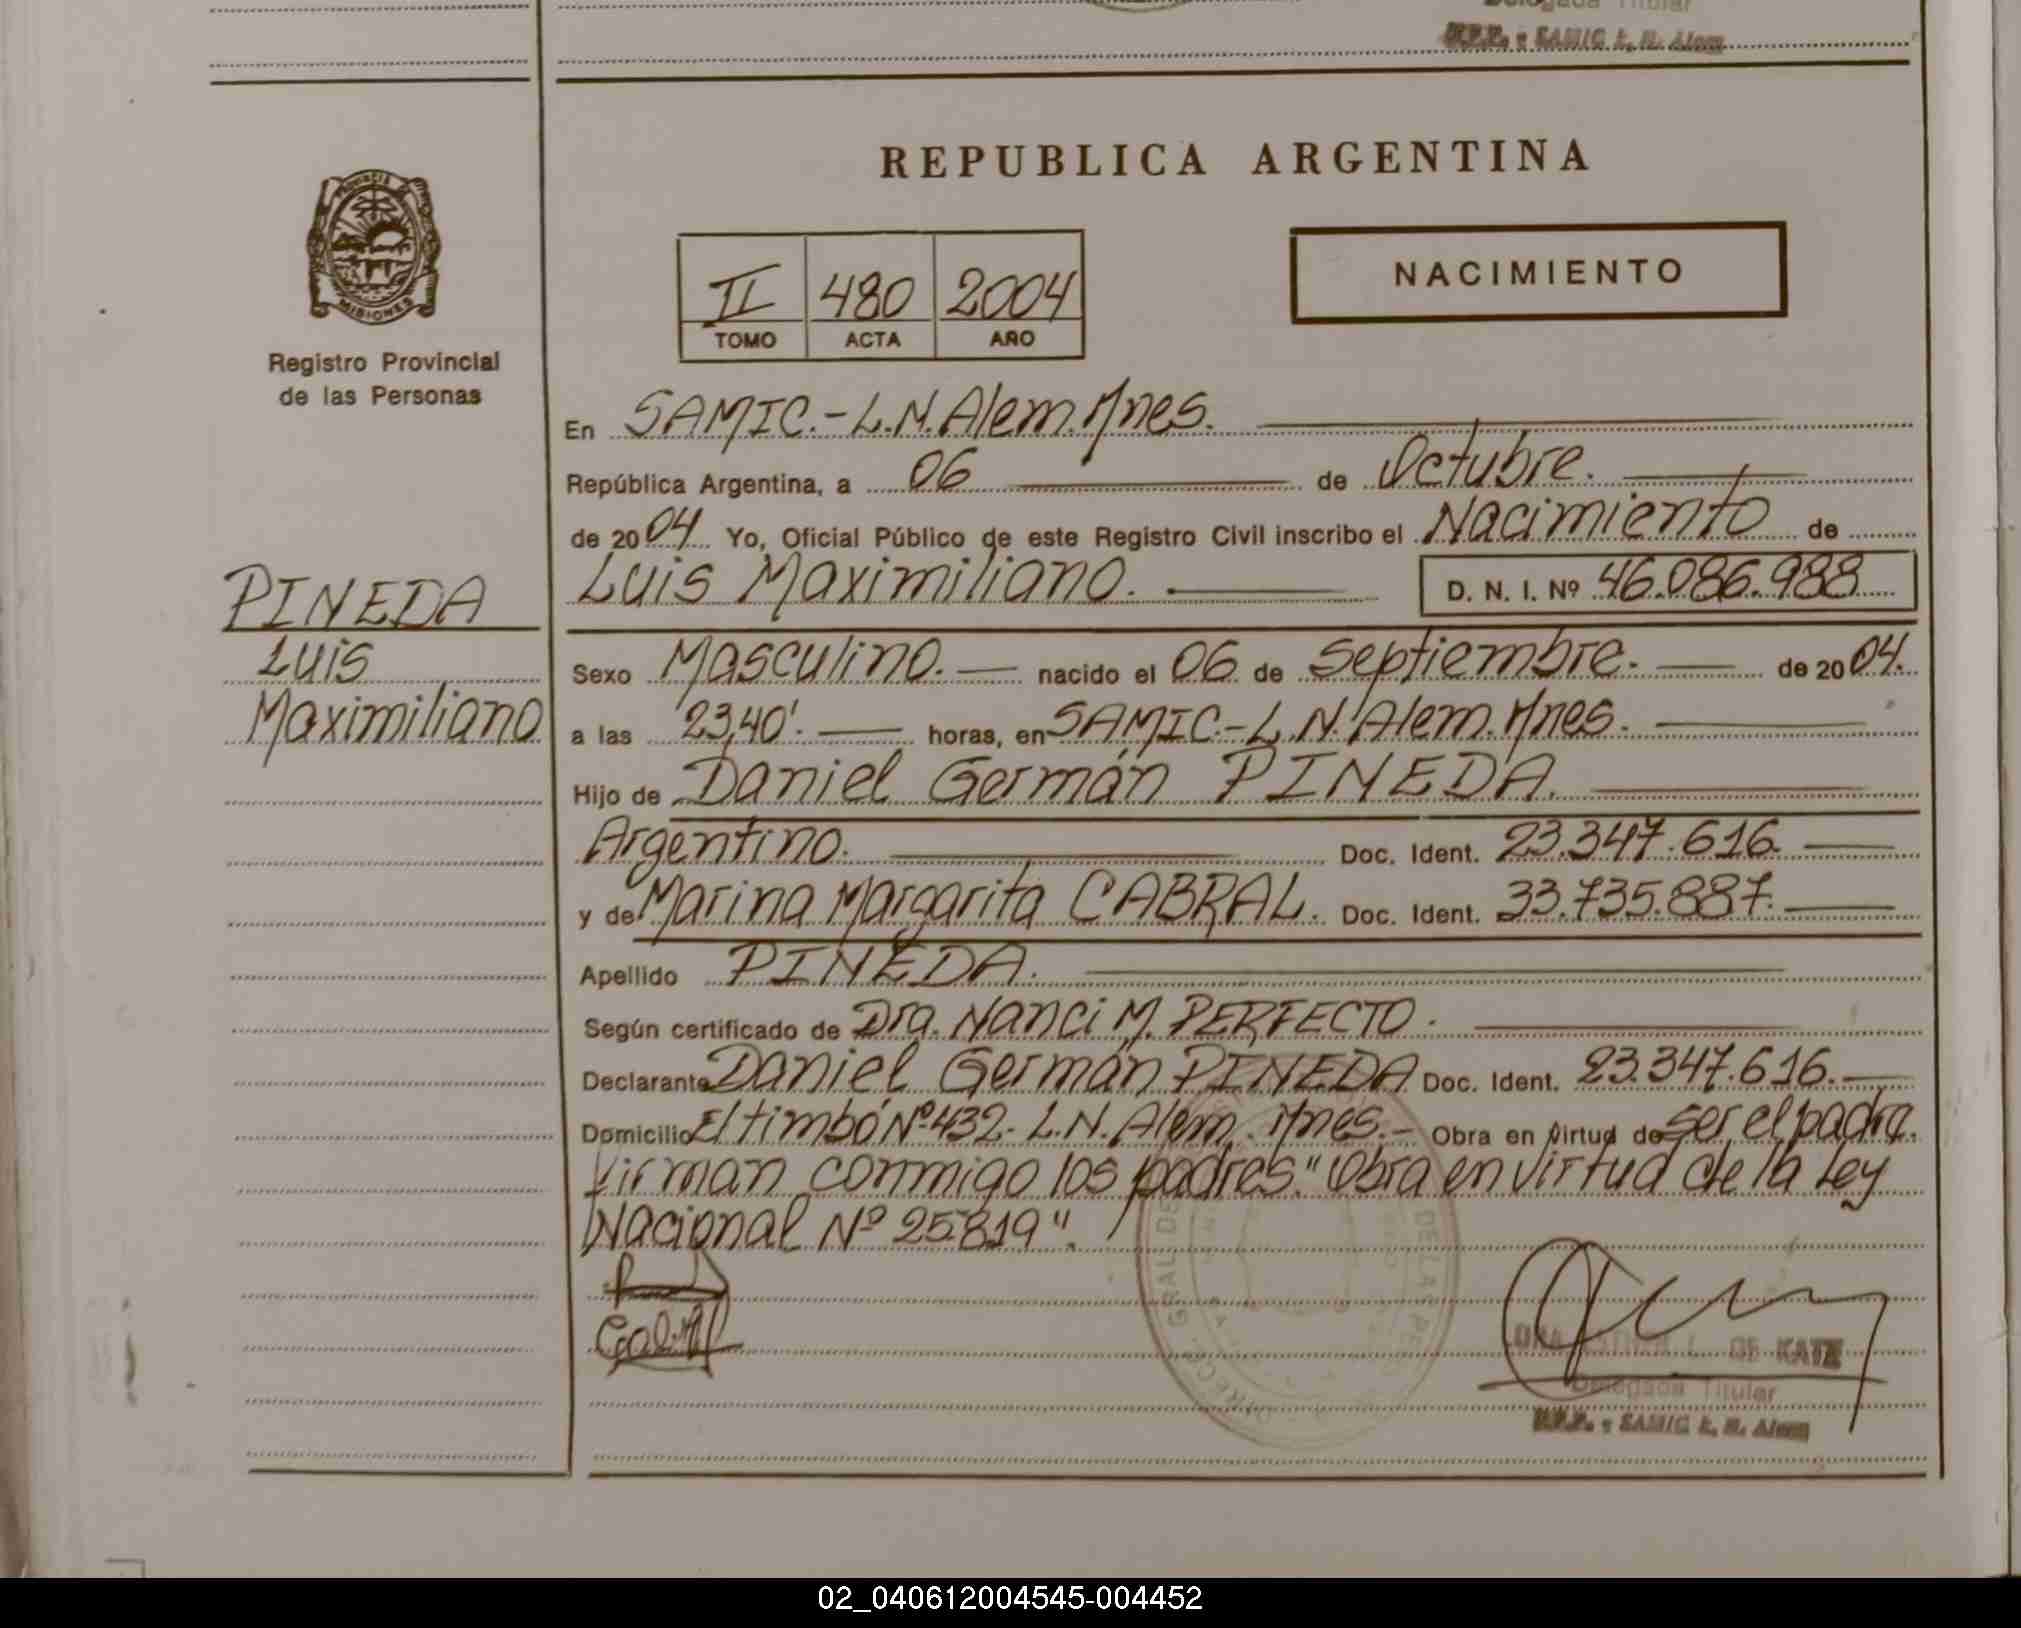 Delegada Titular
R.P.P. - SAMIC L. N. Alem
PROVINCIA DE
MISIONES
Registro Provincial
de las Personas
PINEDA
Luis
Maximiliano
REPUBLICA ARGENTINA
II 480 2004
TOMO ACTA AÑO
NACIMIENTO
En SAMIC.- L.N. Alem. Mnes.
República Argentina, a 06 de Octubre.
de 2004 Yo, Oficial Público de este Registro Civil inscribo el Nacimiento de
Luis Maximiliano. D. N. I. Nº 46.086.988
Sexo Masculino. nacido el 06 de Septiembre. de 2004.
a las 23,40'. horas, en SAMIC.- L.N. Alem. Mnes.
Hijo de Daniel Germán PINEDA.
Argentino. Doc. Ident. 23.347.616.
y de Marina Margarita CABRAL. Doc. Ident. 33.735.887.
Apellido PINEDA.
Según certificado de Dra. Nanci M. PERFECTO.
Declarante Daniel Germán PINEDA Doc. Ident. 23.347.616.
Domicilio El timbó Nº 432. L.N. Alem. Mnes.- Obra en virtud de ser el padre.
Firman conmigo los padres. "Obra en virtud de la Ley
Nacional Nº 25.819".
DE KATZ
Delegada Titular
R.P.P. - SAMIC L. N. Alem
02_040612004545-004452